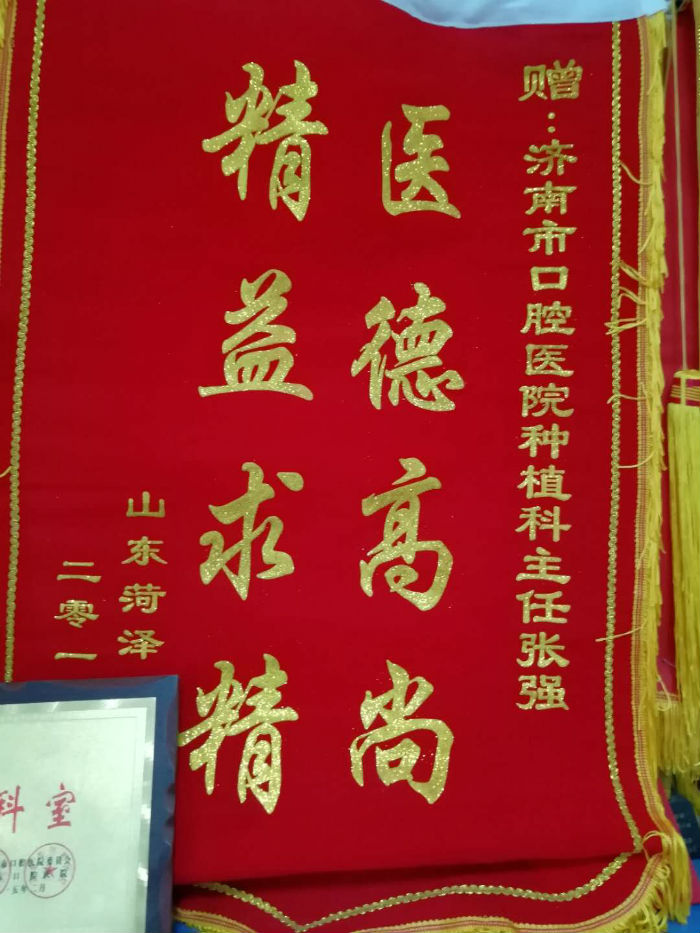 赠：济南市口腔医院种植科主任张强
医德高尚
精益求精
山东菏泽
二零一
科室
五年二月